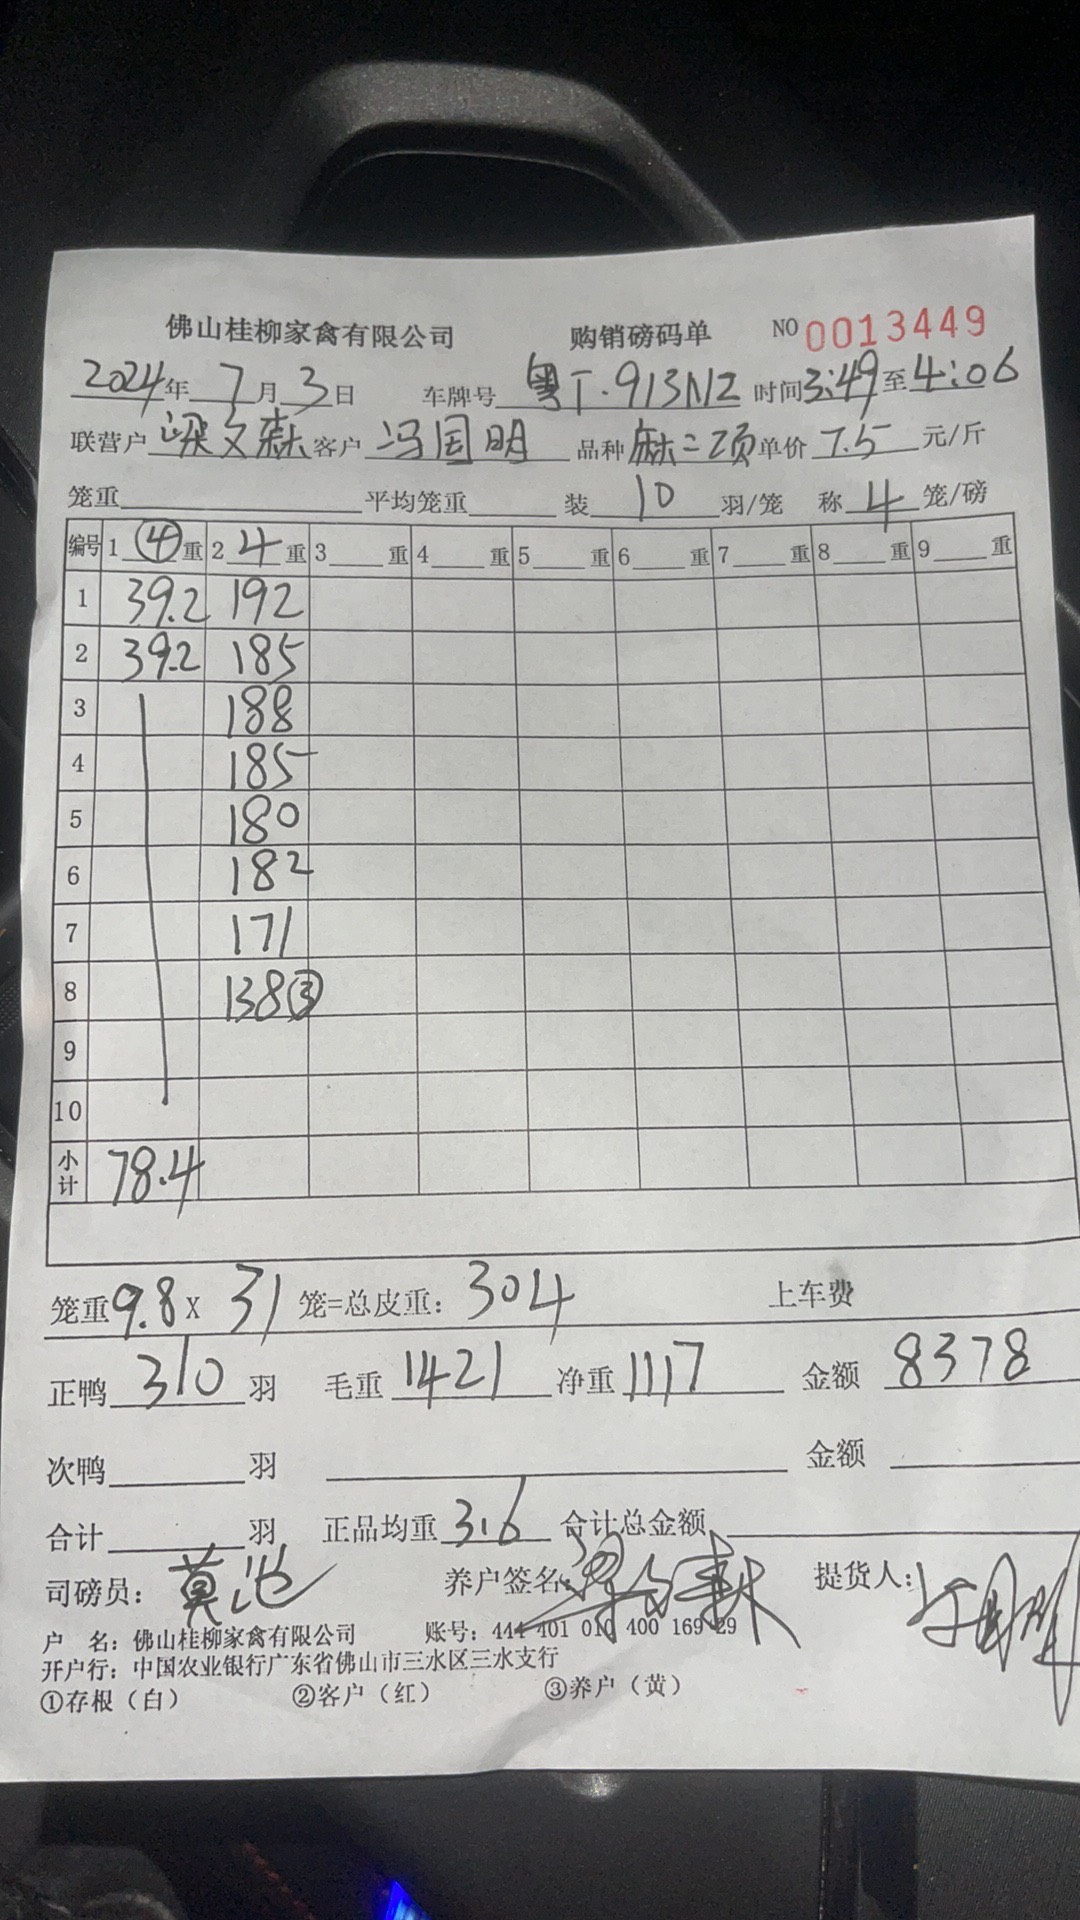 佛山桂柳家禽有限公司 购销磅码单 NO 0013449
2024年 7月 3日 车牌号 粤T·913N2 时间 3:49 至 4:06
联营户 梁文森 客户 冯国明 品种 麻二项 单价 7.5 元/斤
笼重 平均笼重 装 10 羽/笼 称 4 笼/磅
编号 1 ④ 重 2 4 重 3 重 4 重 5 重 6 重 7 重 8 重 9 重
1 39.2 192
2 39.2 185
3 188
4 185
5 180
6 182
7 171
8 138③
9
10
小计 78.4
笼重 9.8 X 31 笼=总皮重: 304 上车费
正鸭 310 羽 毛重 1421 净重 1117 金额 8378
次鸭 羽 金额
合计 羽 正品均重 3.6 合计总金额
司磅员: 莫池 养户签名: 梁文森 提货人: 冯国明
户 名: 佛山桂柳家禽有限公司 账号: 444 401 010 400 169 29
开户行: 中国农业银行广东省佛山市三水区三水支行
①存根（白） ②客户（红） ③养户（黄）